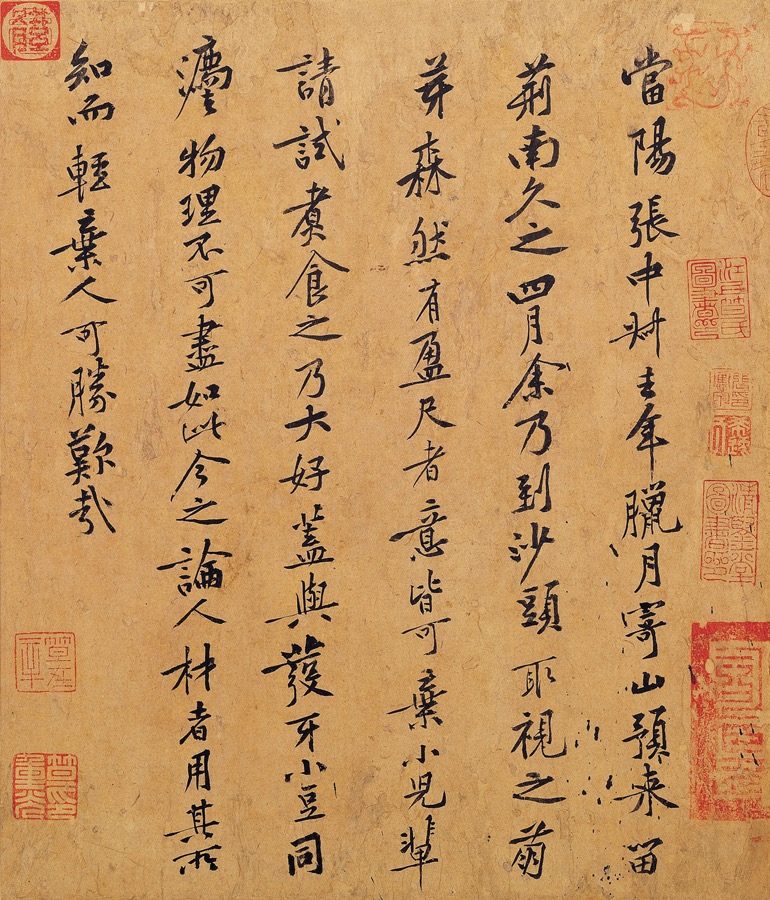 當陽張中叔去年臘月寄山預來留
荊南久之四月余乃到沙頭取視之萌
芽森然有盈尺者意皆可棄小兒輩
請試煮食之乃大好蓋與發牙小豆同
灋物理不可盡如此今之論人材者用其所
知而輕棄人可勝歎哉